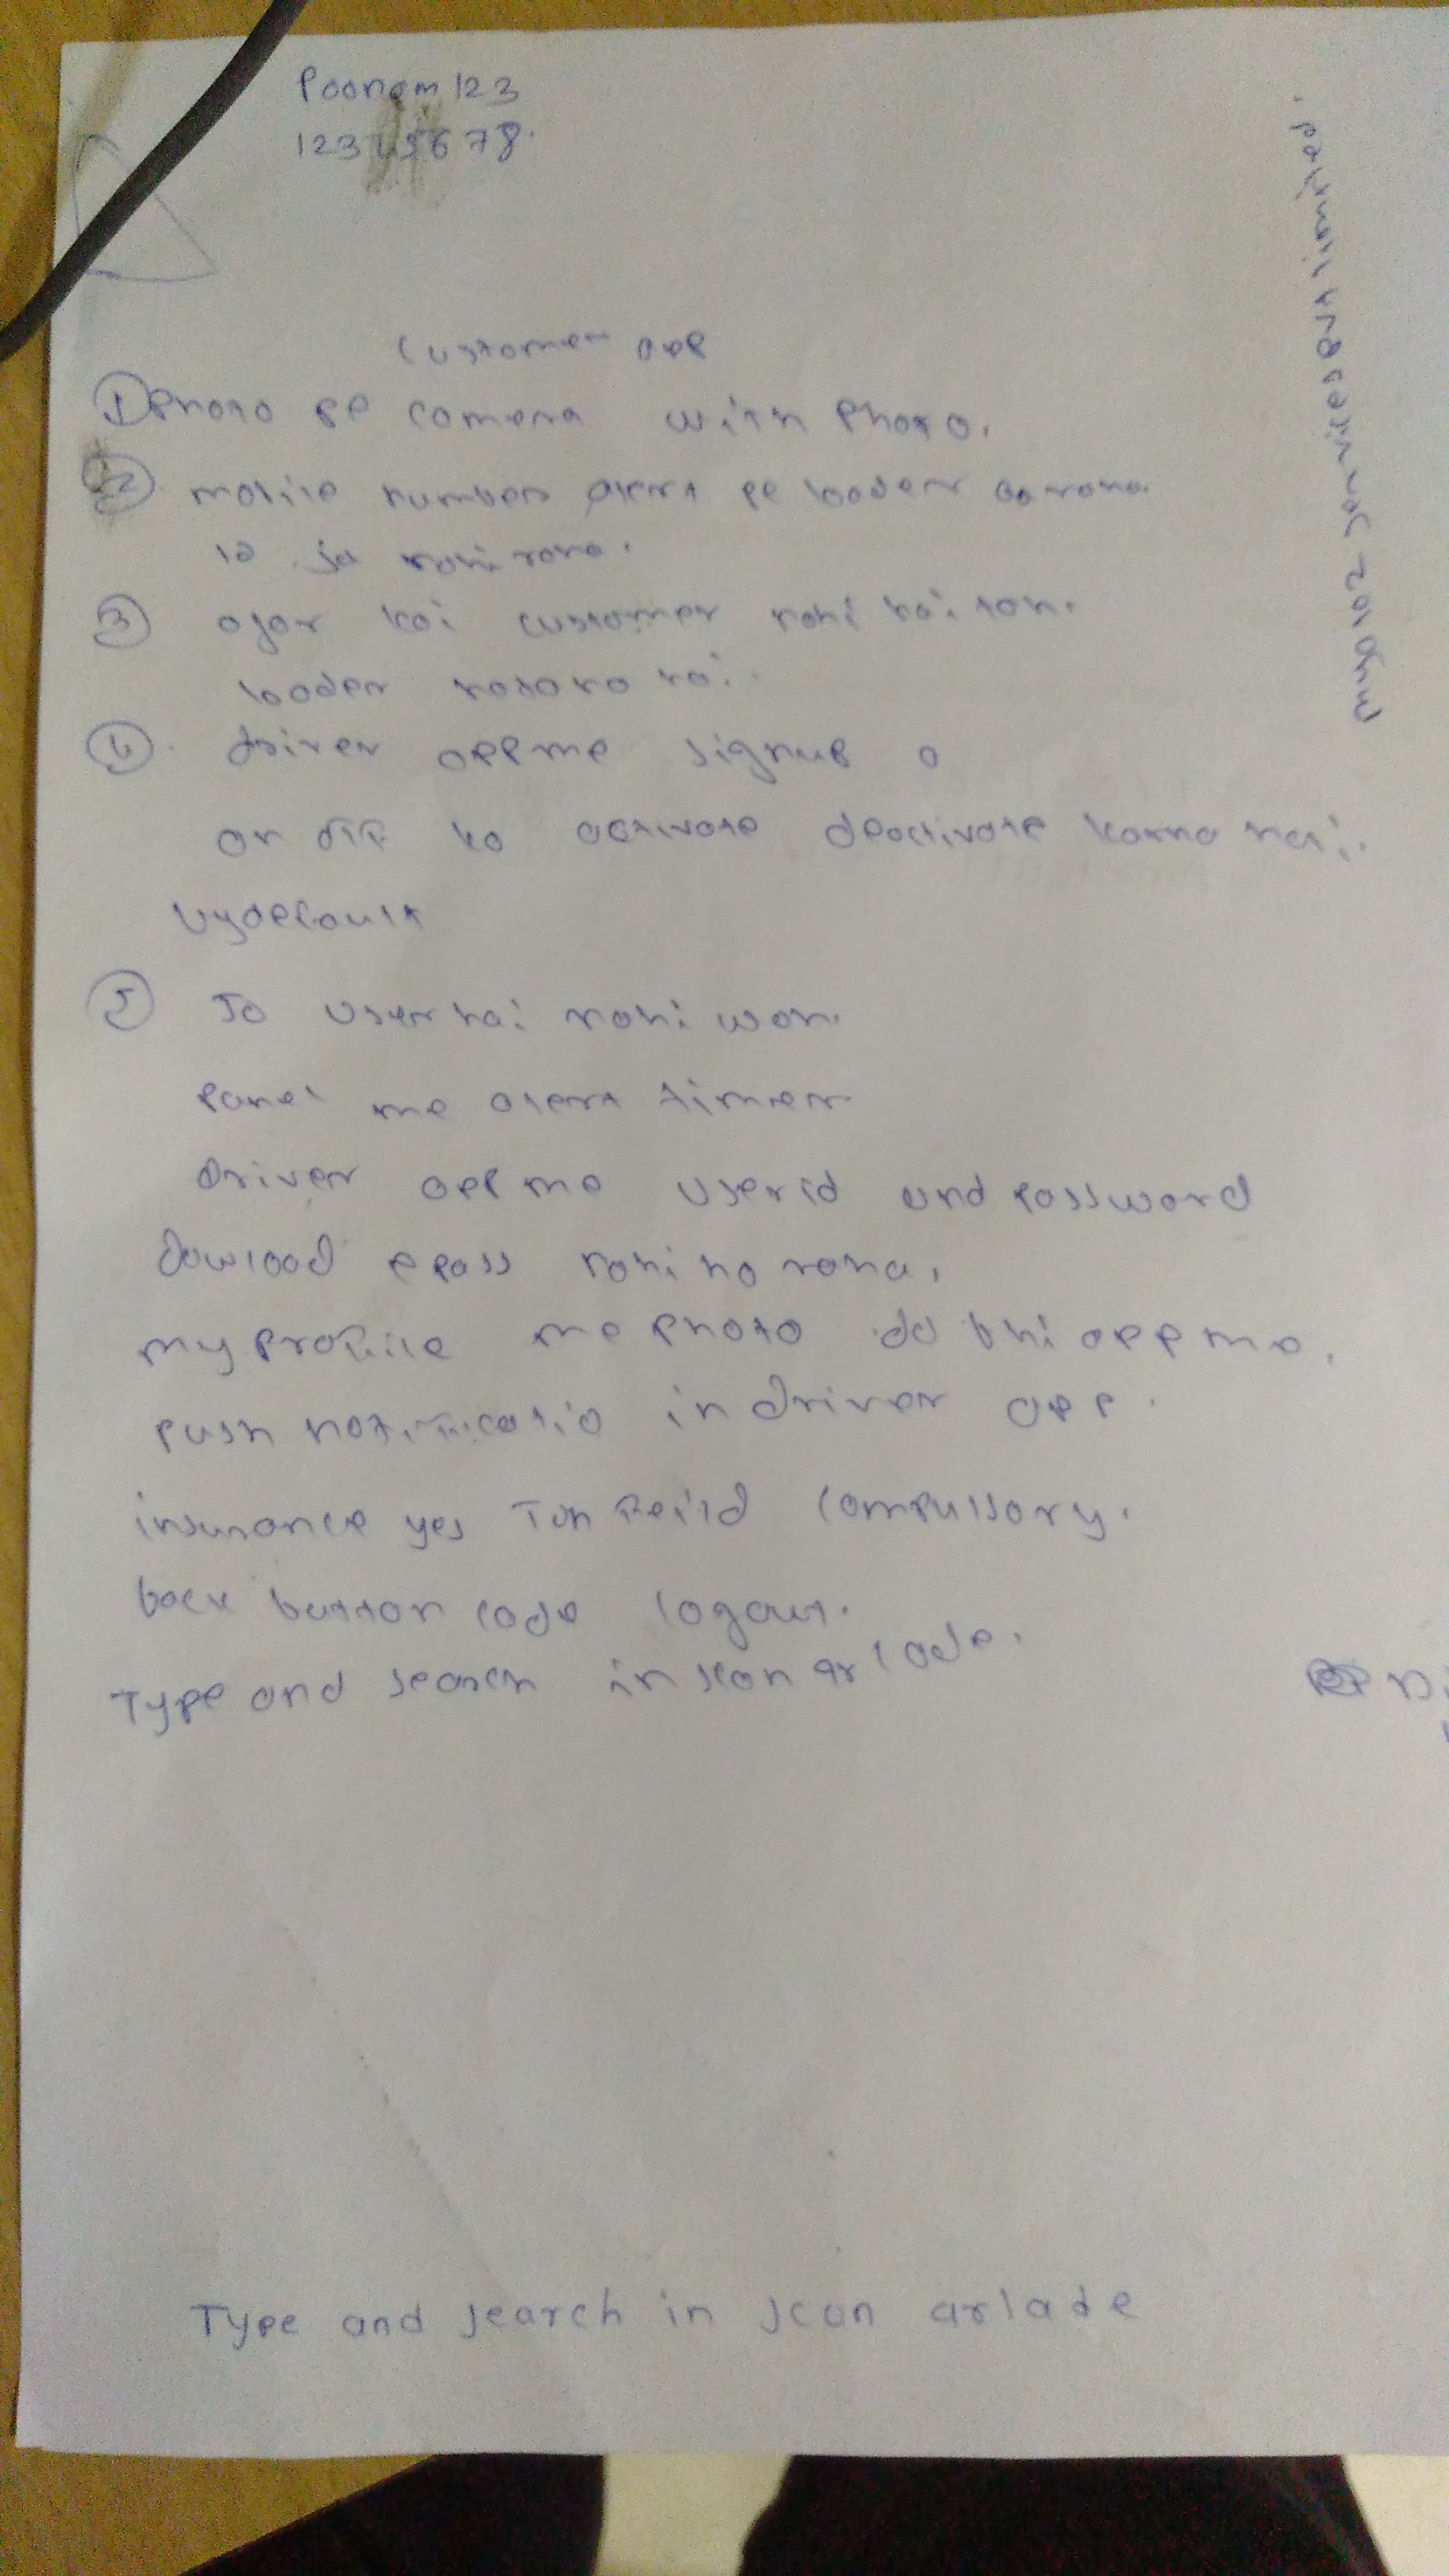 Poonam 123
12345678.
Customer app
① Photo pe camera with photo.
② mobile number alert pe loader
ja nahi raha.
③ agar koi customer nahi hai toh.
loader
④ driver app me signup
or off ko activate deactivate karna hai.
bydefault
⑤ Jo user hai nahi woh.
panel me alert timer
driver app me userid and password
dowload epass nahi ho raha.
my profile me photo do bhi app me.
push notificatio in driver app.
insurance yes Toh feild compulsory.
back button code logout.
Type and search in scan qr code.
Type and search in scan